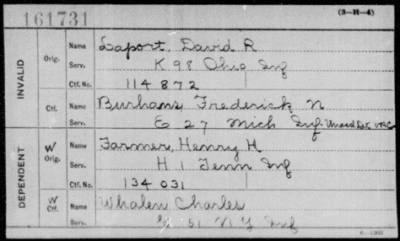 161731
(3-H-4)
INVALID
Orig. Name Laport, David R
Serv. K 98 Ohio Inf
Ctf. No. 114872
Ctf. Name Burhans Frederick N
Serv. E 27 Mich Inf Unassd Det VRC
DEPENDENT
W Orig. Name Farmer, Henry H
Serv. H 1 Tenn Inf
Ctf. No. 134031
W Ctf. Name Whalen Charles
Serv. 51 N Y Inf